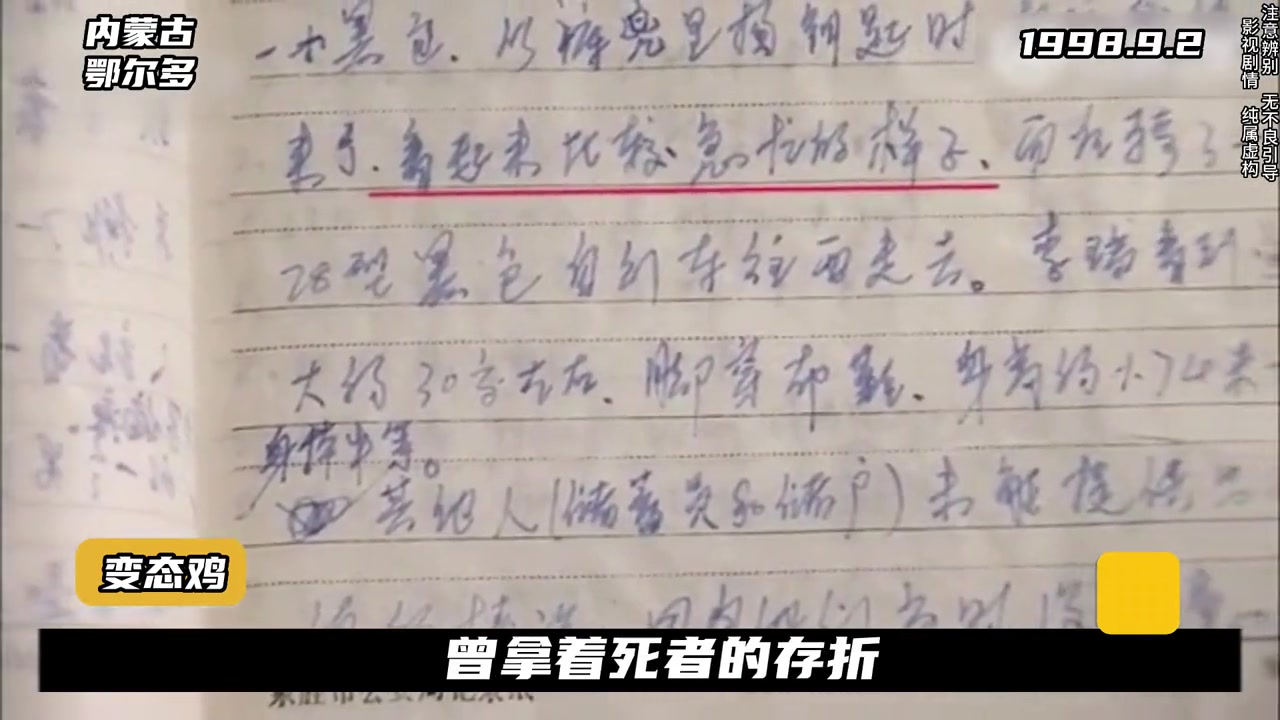 内蒙古
鄂尔多
1998.9.2
注意辨别 无不良引导
影视剧情 纯属虚构
一个黑包、从裤兜里掏钥匙时
来了.看起来比较急忙的样子、而后骑了
28型黑色自行车往西走去。李瑞看到
大约30岁左右、脚穿布鞋、身高约1.74米
身体中等。
其他人(储蓄员和储户)未能提供
变态鸡
曾拿着死者的存折